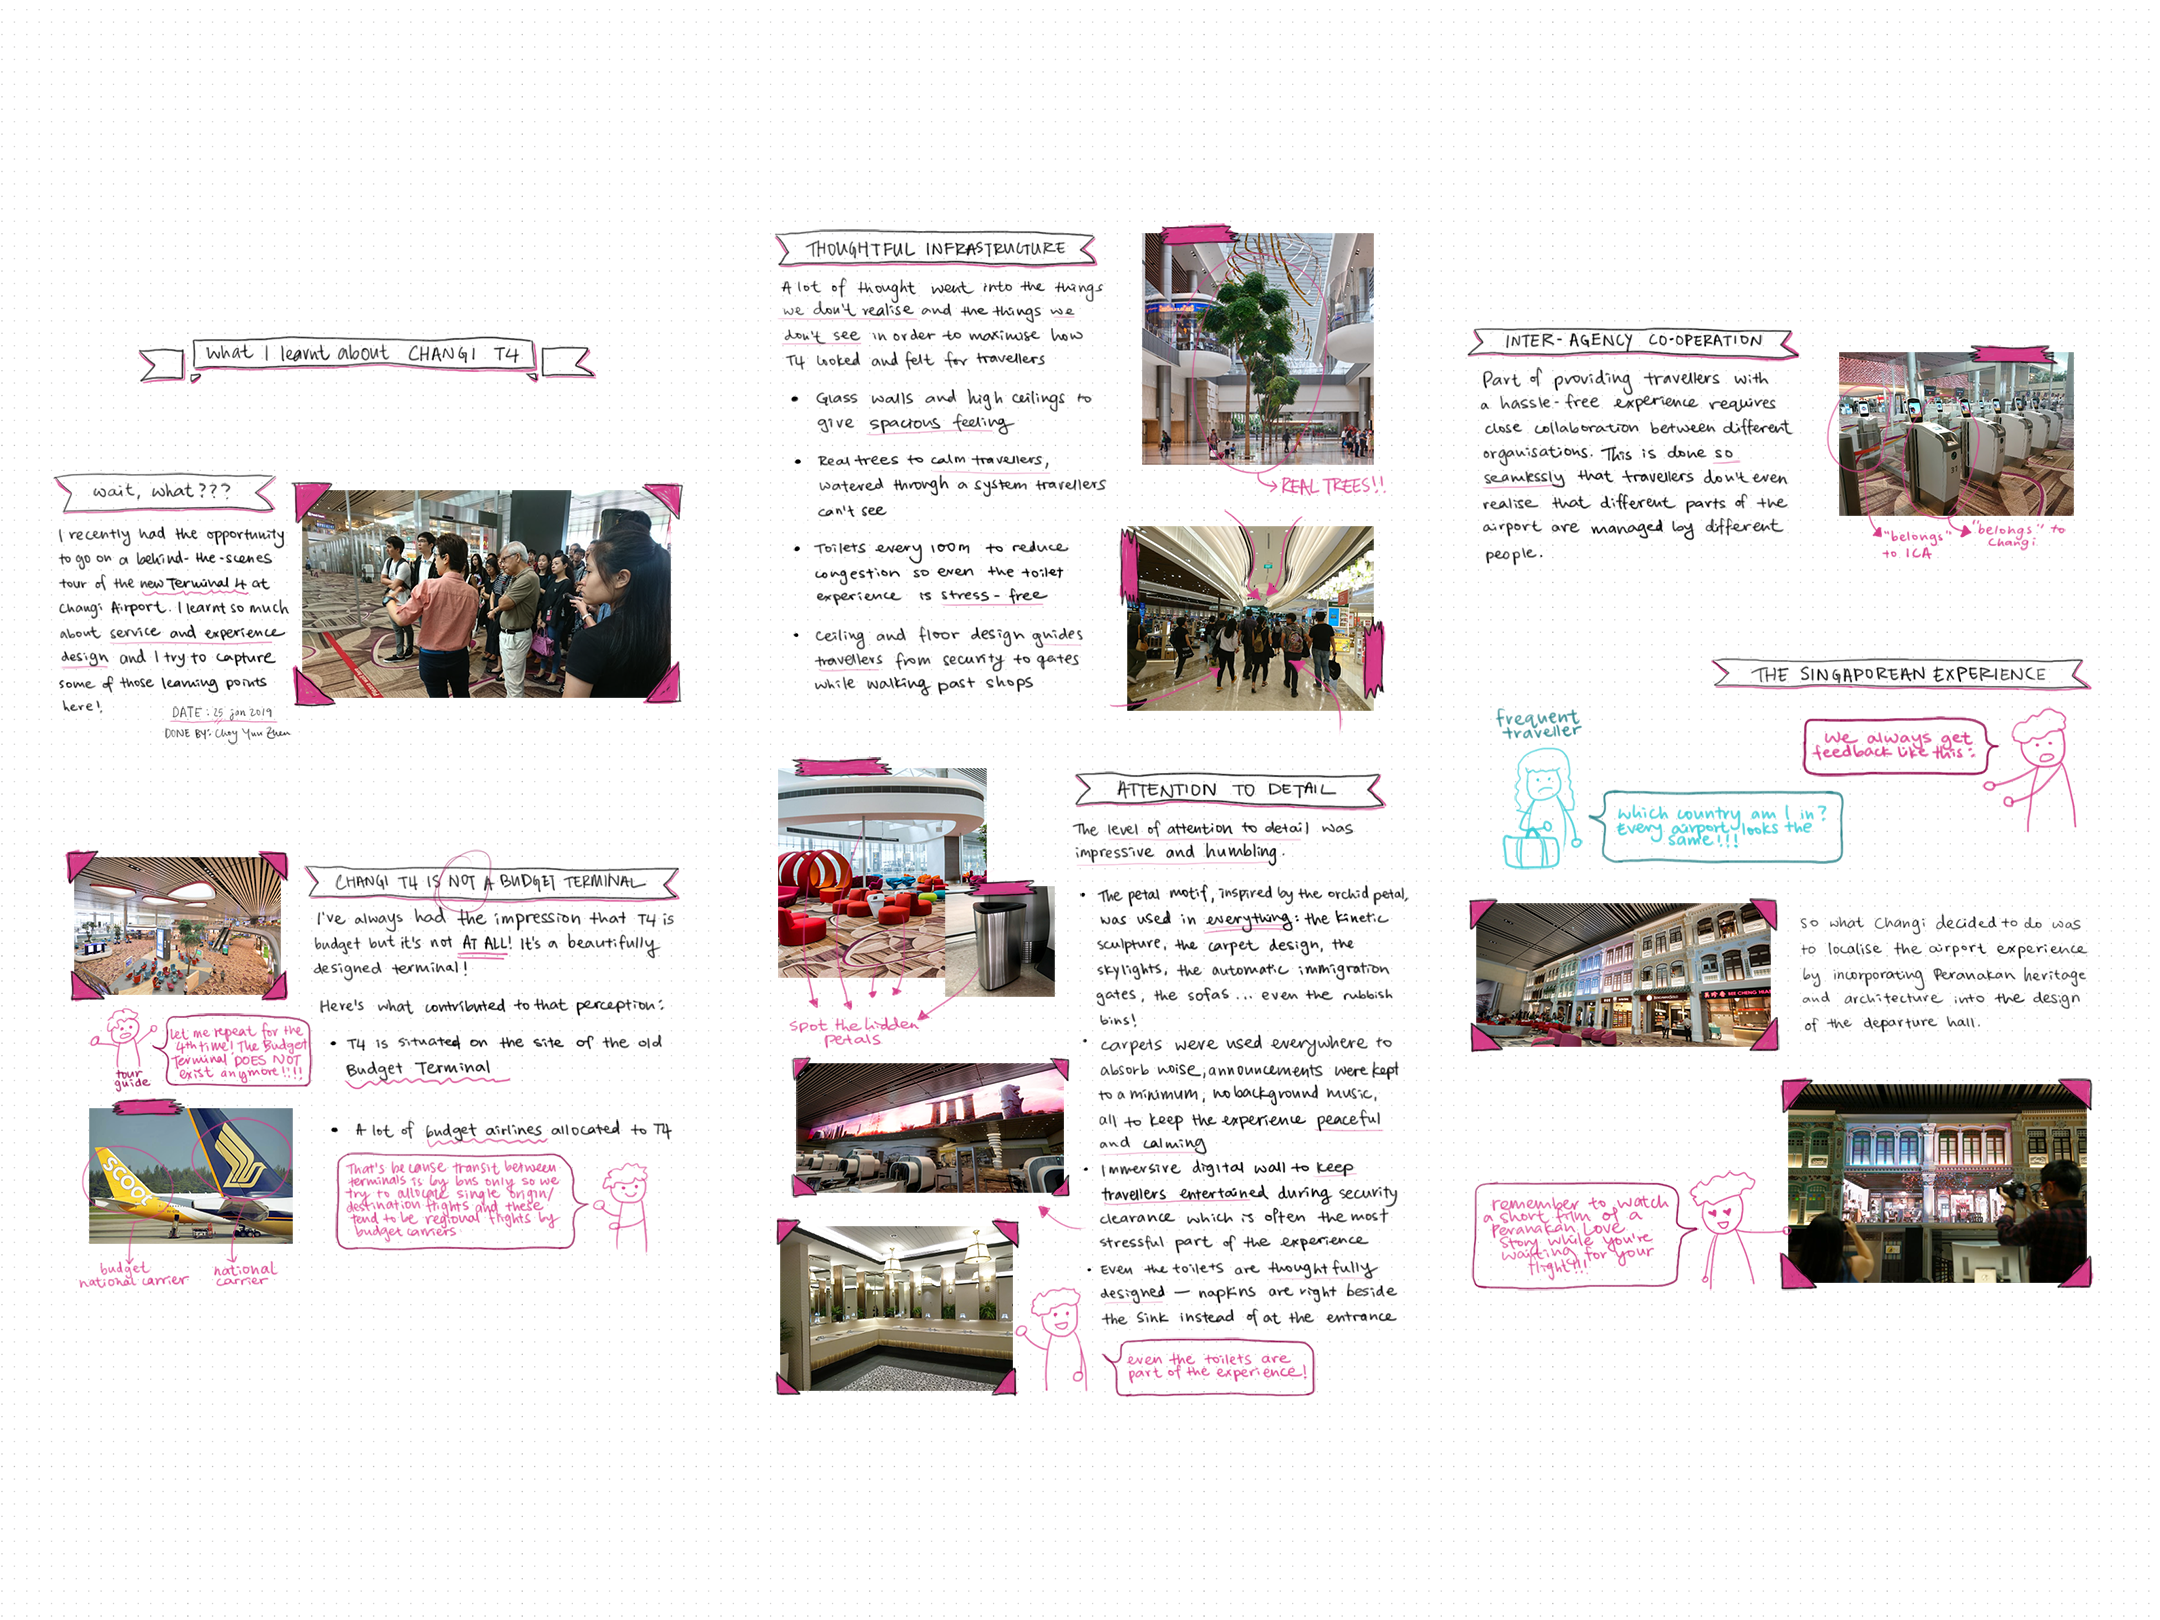 what I learnt about CHANGI T4
wait, what???
I recently had the opportunity
to go on a behind-the-scenes
tour of the new Terminal 4 at
Changi Airport. I learnt so much
about service and experience
design and I try to capture
some of those learning points
here!
DATE: 25 jan 2019
DONE BY: Choy Yun Zhen
CHANGI T4 IS NOT A BUDGET TERMINAL
I've always had the impression that T4 is
budget but it's not AT ALL! It's a beautifully
designed terminal!
Here's what contributed to that perception:
• T4 is situated on the site of the old
Budget Terminal
let me repeat for the
4th time! The Budget
Terminal DOES NOT
exist anymore!!!!
tour
guide
• A lot of budget airlines allocated to T4
That's because transit between
terminals is by bus only so we
try to allocate single origin/
destination flights and these
tend to be regional flights by
budget carriers
scoot
budget
national carrier
national
carrier
THOUGHTFUL INFRASTRUCTURE
A lot of thought went into the things
we don't realise and the things we
don't see in order to maximise how
T4 looked and felt for travellers
• Glass walls and high ceilings to
give spacious feeling
• Real trees to calm travellers,
watered through a system travellers
can't see
• Toilets every 100m to reduce
congestion so even the toilet
experience is stress-free
• Ceiling and floor design guides
travellers from security to gates
while walking past shops
REAL TREES!!
ATTENTION TO DETAIL
The level of attention to detail was
impressive and humbling.
• The petal motif, inspired by the orchid petal,
was used in everything: the kinetic
sculpture, the carpet design, the
skylights, the automatic immigration
gates, the sofas... even the rubbish
bins!
• carpets were used everywhere to
absorb noise, announcements were kept
to a minimum, no background music,
all to keep the experience peaceful
and calming
• Immersive digital wall to keep
travellers entertained during security
clearance which is often the most
stressful part of the experience
• Even the toilets are thoughtfully
designed — napkins are right beside
the sink instead of at the entrance
spot the hidden
petals
even the toilets are
part of the experience!
INTER-AGENCY CO-OPERATION
Part of providing travellers with
a hassle-free experience requires
close collaboration between different
organisations. This is done so
seamlessly that travellers don't even
realise that different parts of the
airport are managed by different
people.
"belongs"
to ICA
"belongs" to
Changi
THE SINGAPOREAN EXPERIENCE
frequent
traveller
We always get
feedback like this:
which country am I in?
Every airport looks the
same!!!
So what Changi decided to do was
to localise the airport experience
by incorporating Peranakan heritage
and architecture into the design
of the departure hall.
remember to watch
a short film of a
Peranakan Love
Story while you're
waiting for your
flight!!!